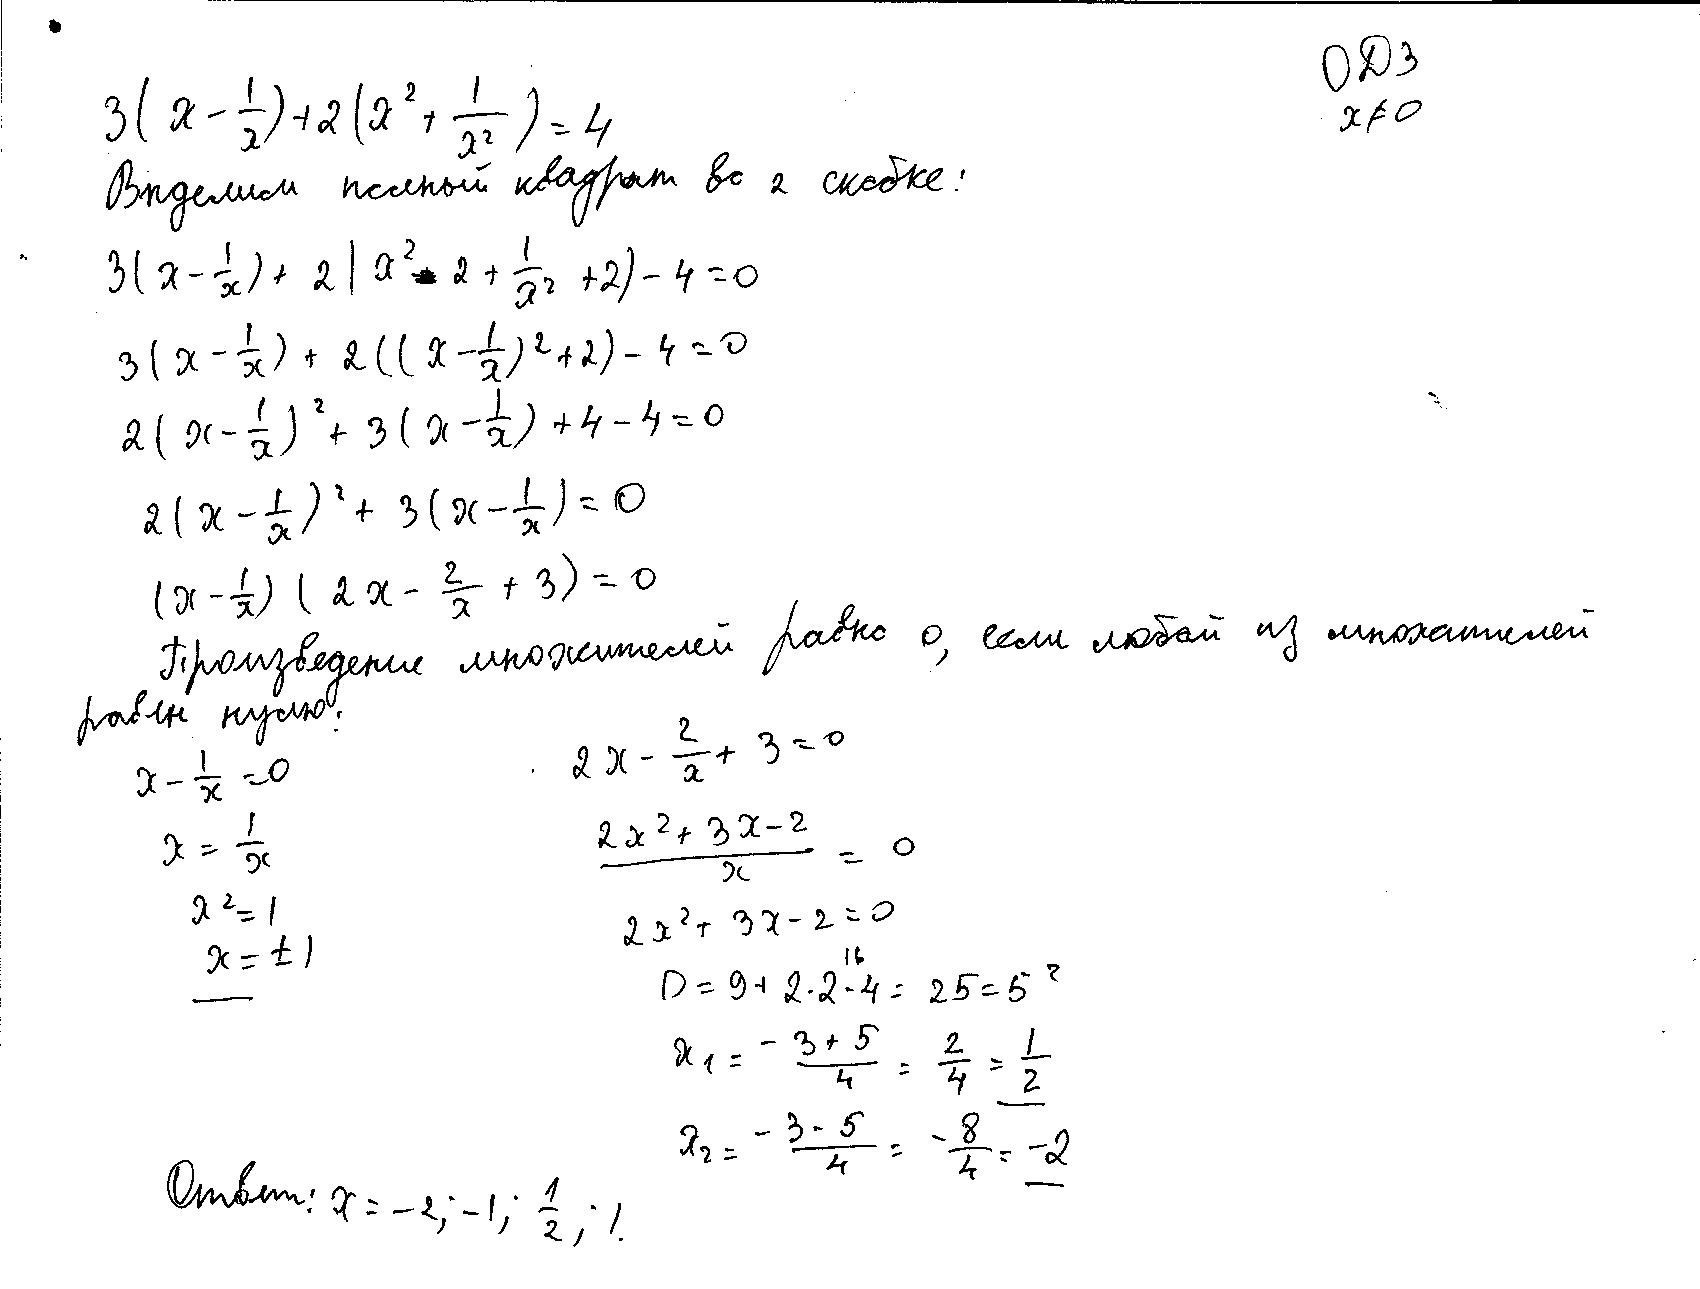 ОДЗ
x≠0
3(x - 1/x) + 2(x² + 1/x²) = 4
Выделим полный квадрат во 2 скобке:
3(x - 1/x) + 2(x² - 2 + 1/x² + 2) - 4 = 0
3(x - 1/x) + 2((x - 1/x)² + 2) - 4 = 0
2(x - 1/x)² + 3(x - 1/x) + 4 - 4 = 0
2(x - 1/x)² + 3(x - 1/x) = 0
(x - 1/x)(2x - 2/x + 3) = 0
Произведение множителей равно 0, если любой из множителей
равен нулю:
x - 1/x = 0
x = 1/x
x² = 1
x = ±1
2x - 2/x + 3 = 0
(2x² + 3x - 2)/x = 0
2x² + 3x - 2 = 0
16
D = 9 + 2·2·4 = 25 = 5²
x₁ = (-3 + 5)/4 = 2/4 = 1/2
x₂ = (-3 - 5)/4 = -8/4 = -2
Ответ: x = -2; -1; 1/2; 1.